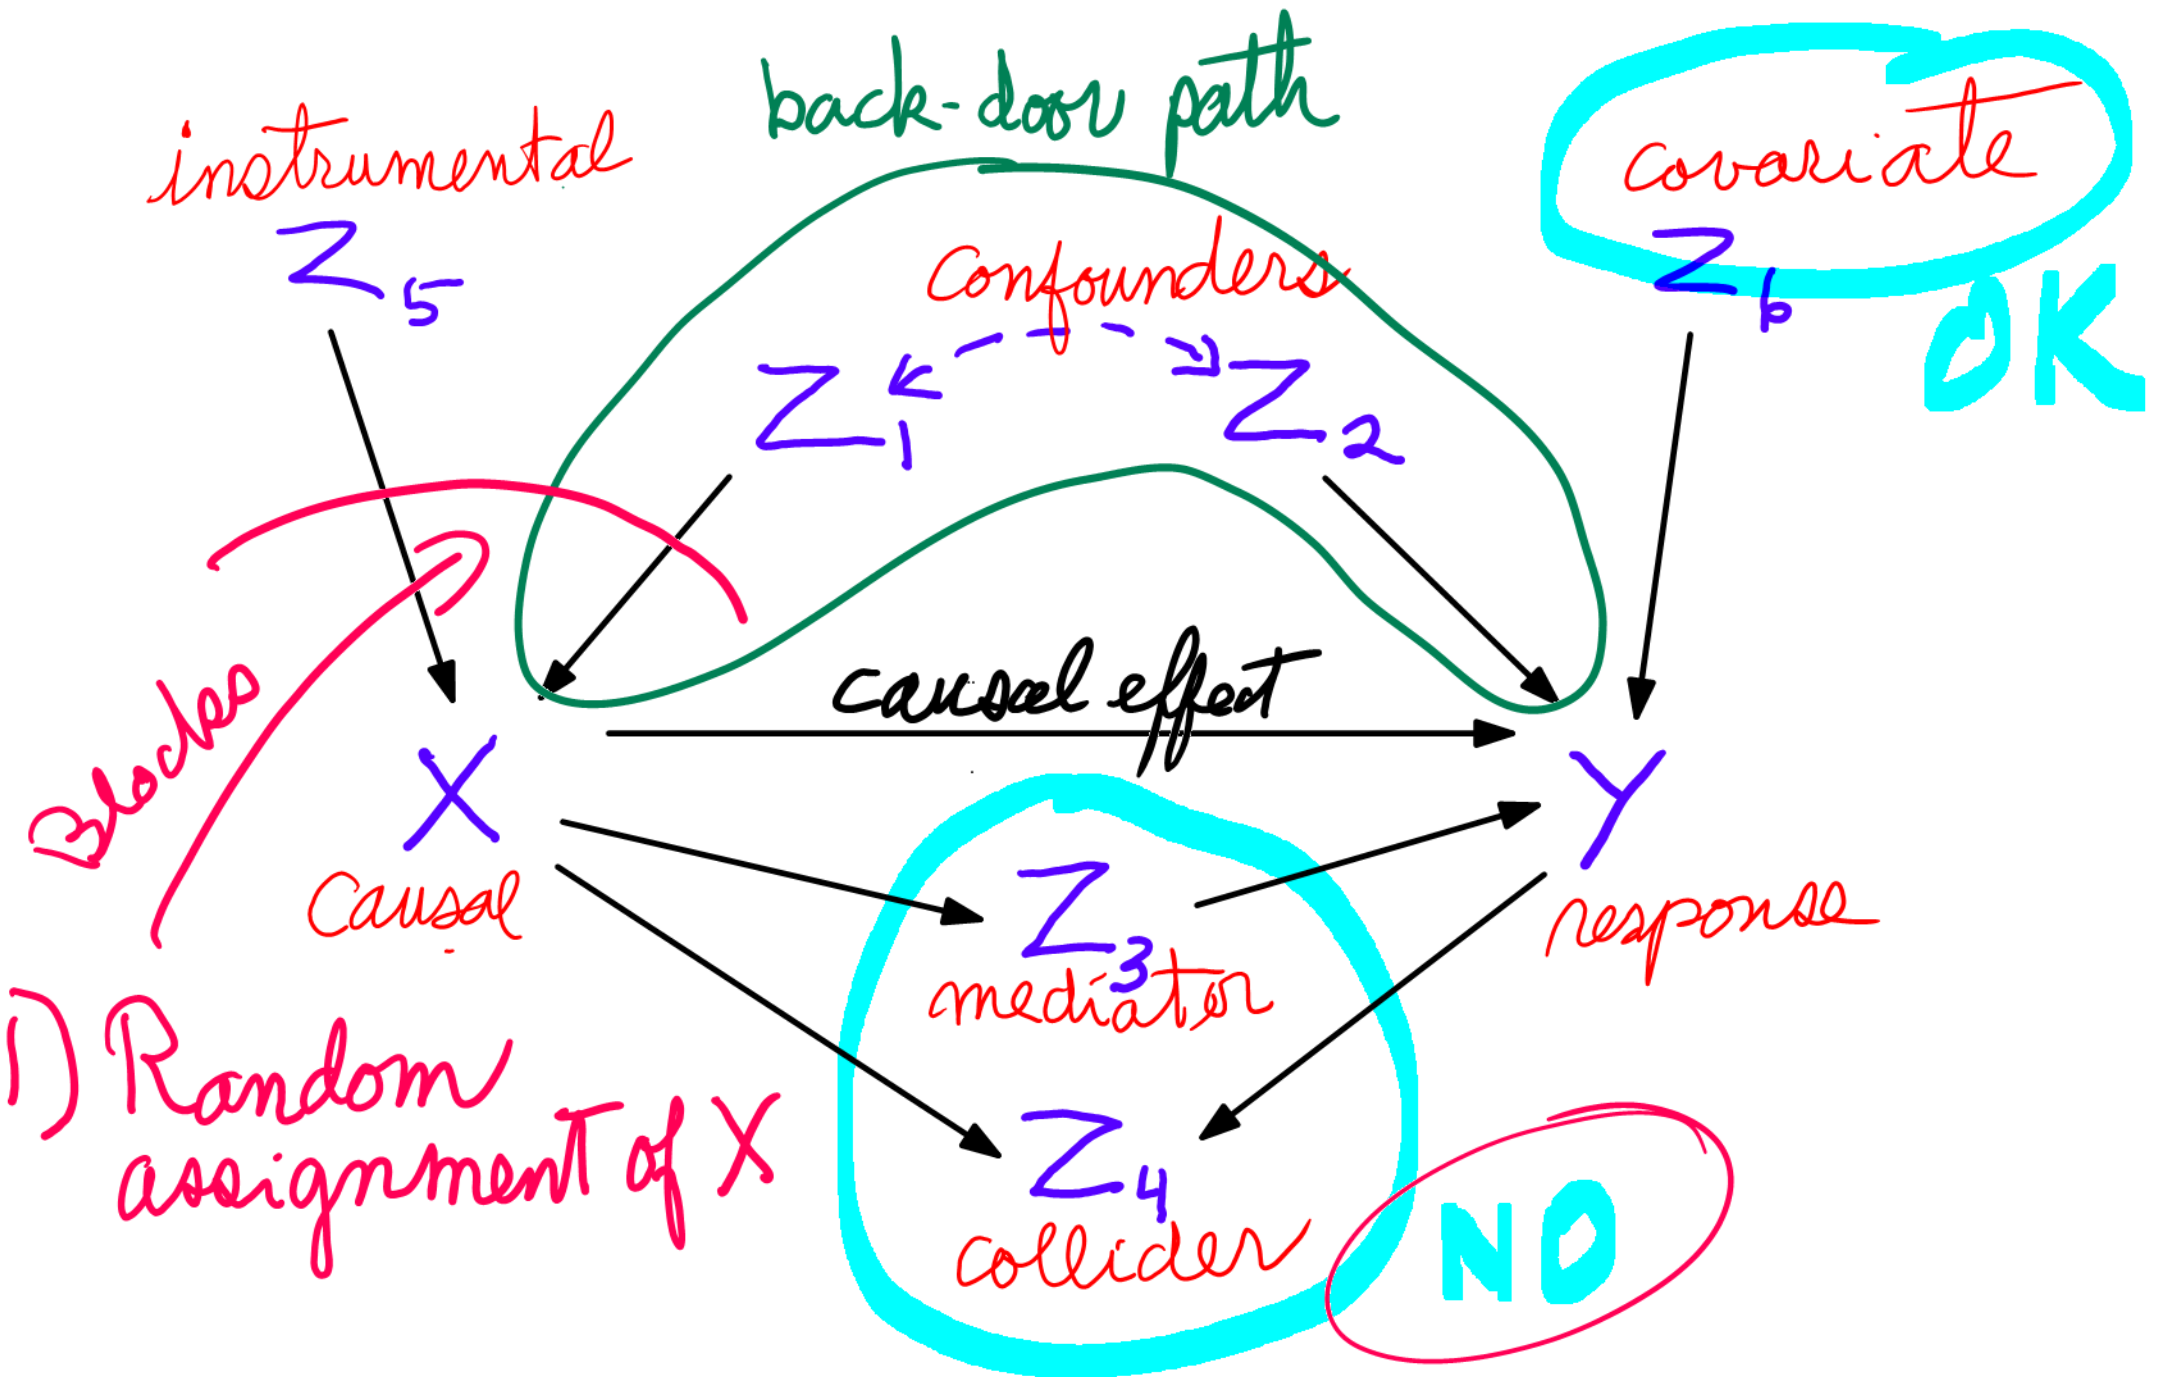 back-door path
instrumental
Z5
covariate
Z6
OK
confounders
Z1
Z2
Blocks
causal effect
X
causal
Y
response
Z3
mediator
1) Random
assignment of X
Z4
collider
NO